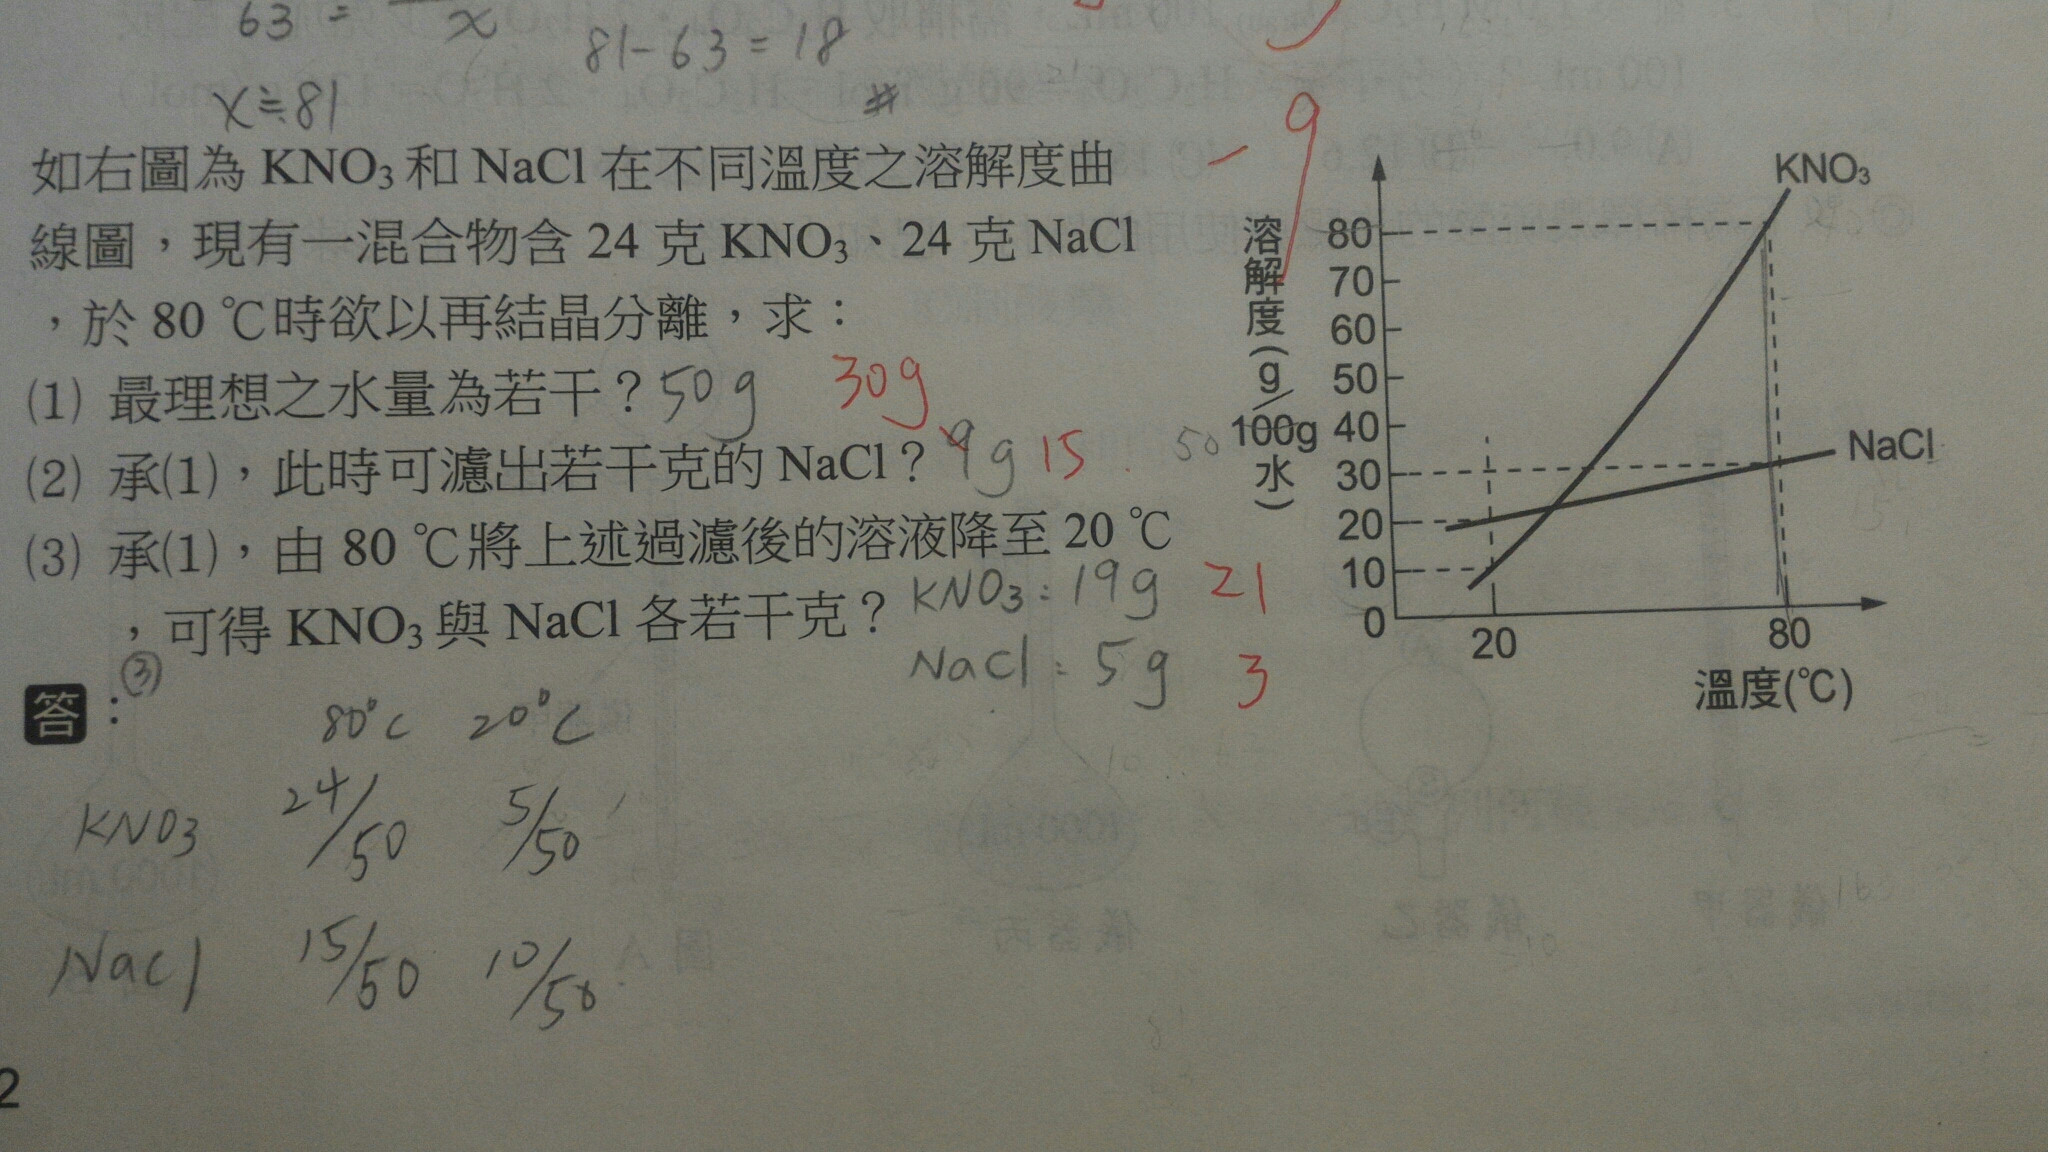 63 = x
81-63=18
x≒81 #
如右圖為 KNO₃ 和 NaCl 在不同溫度之溶解度曲
線圖，現有一混合物含 24 克 KNO₃、24 克 NaCl
，於 80 ℃時欲以再結晶分離，求：
(1) 最理想之水量為若干？50g 30g
(2) 承(1)，此時可濾出若干克的 NaCl？9g 15
(3) 承(1)，由 80 ℃將上述過濾後的溶液降至 20 ℃
，可得 KNO₃ 與 NaCl 各若干克？
KNO3：19g 21
NaCl：5g 3
答：
③
80°C 20°C
KNO3 24/50 5/50
NaCl 15/50 10/50
2
-9
溶解度(g/100g水)
50
80
70
60
50
40
30
20
10
0
KNO₃
NaCl
20 80
溫度(℃)